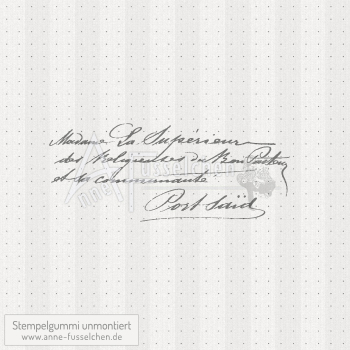 Madame La Supérieure
des Religieuses du Bon Pasteur
et sa communauté
Port Saïd
Stempelgummi unmontiert
www.anne-fusselchen.de